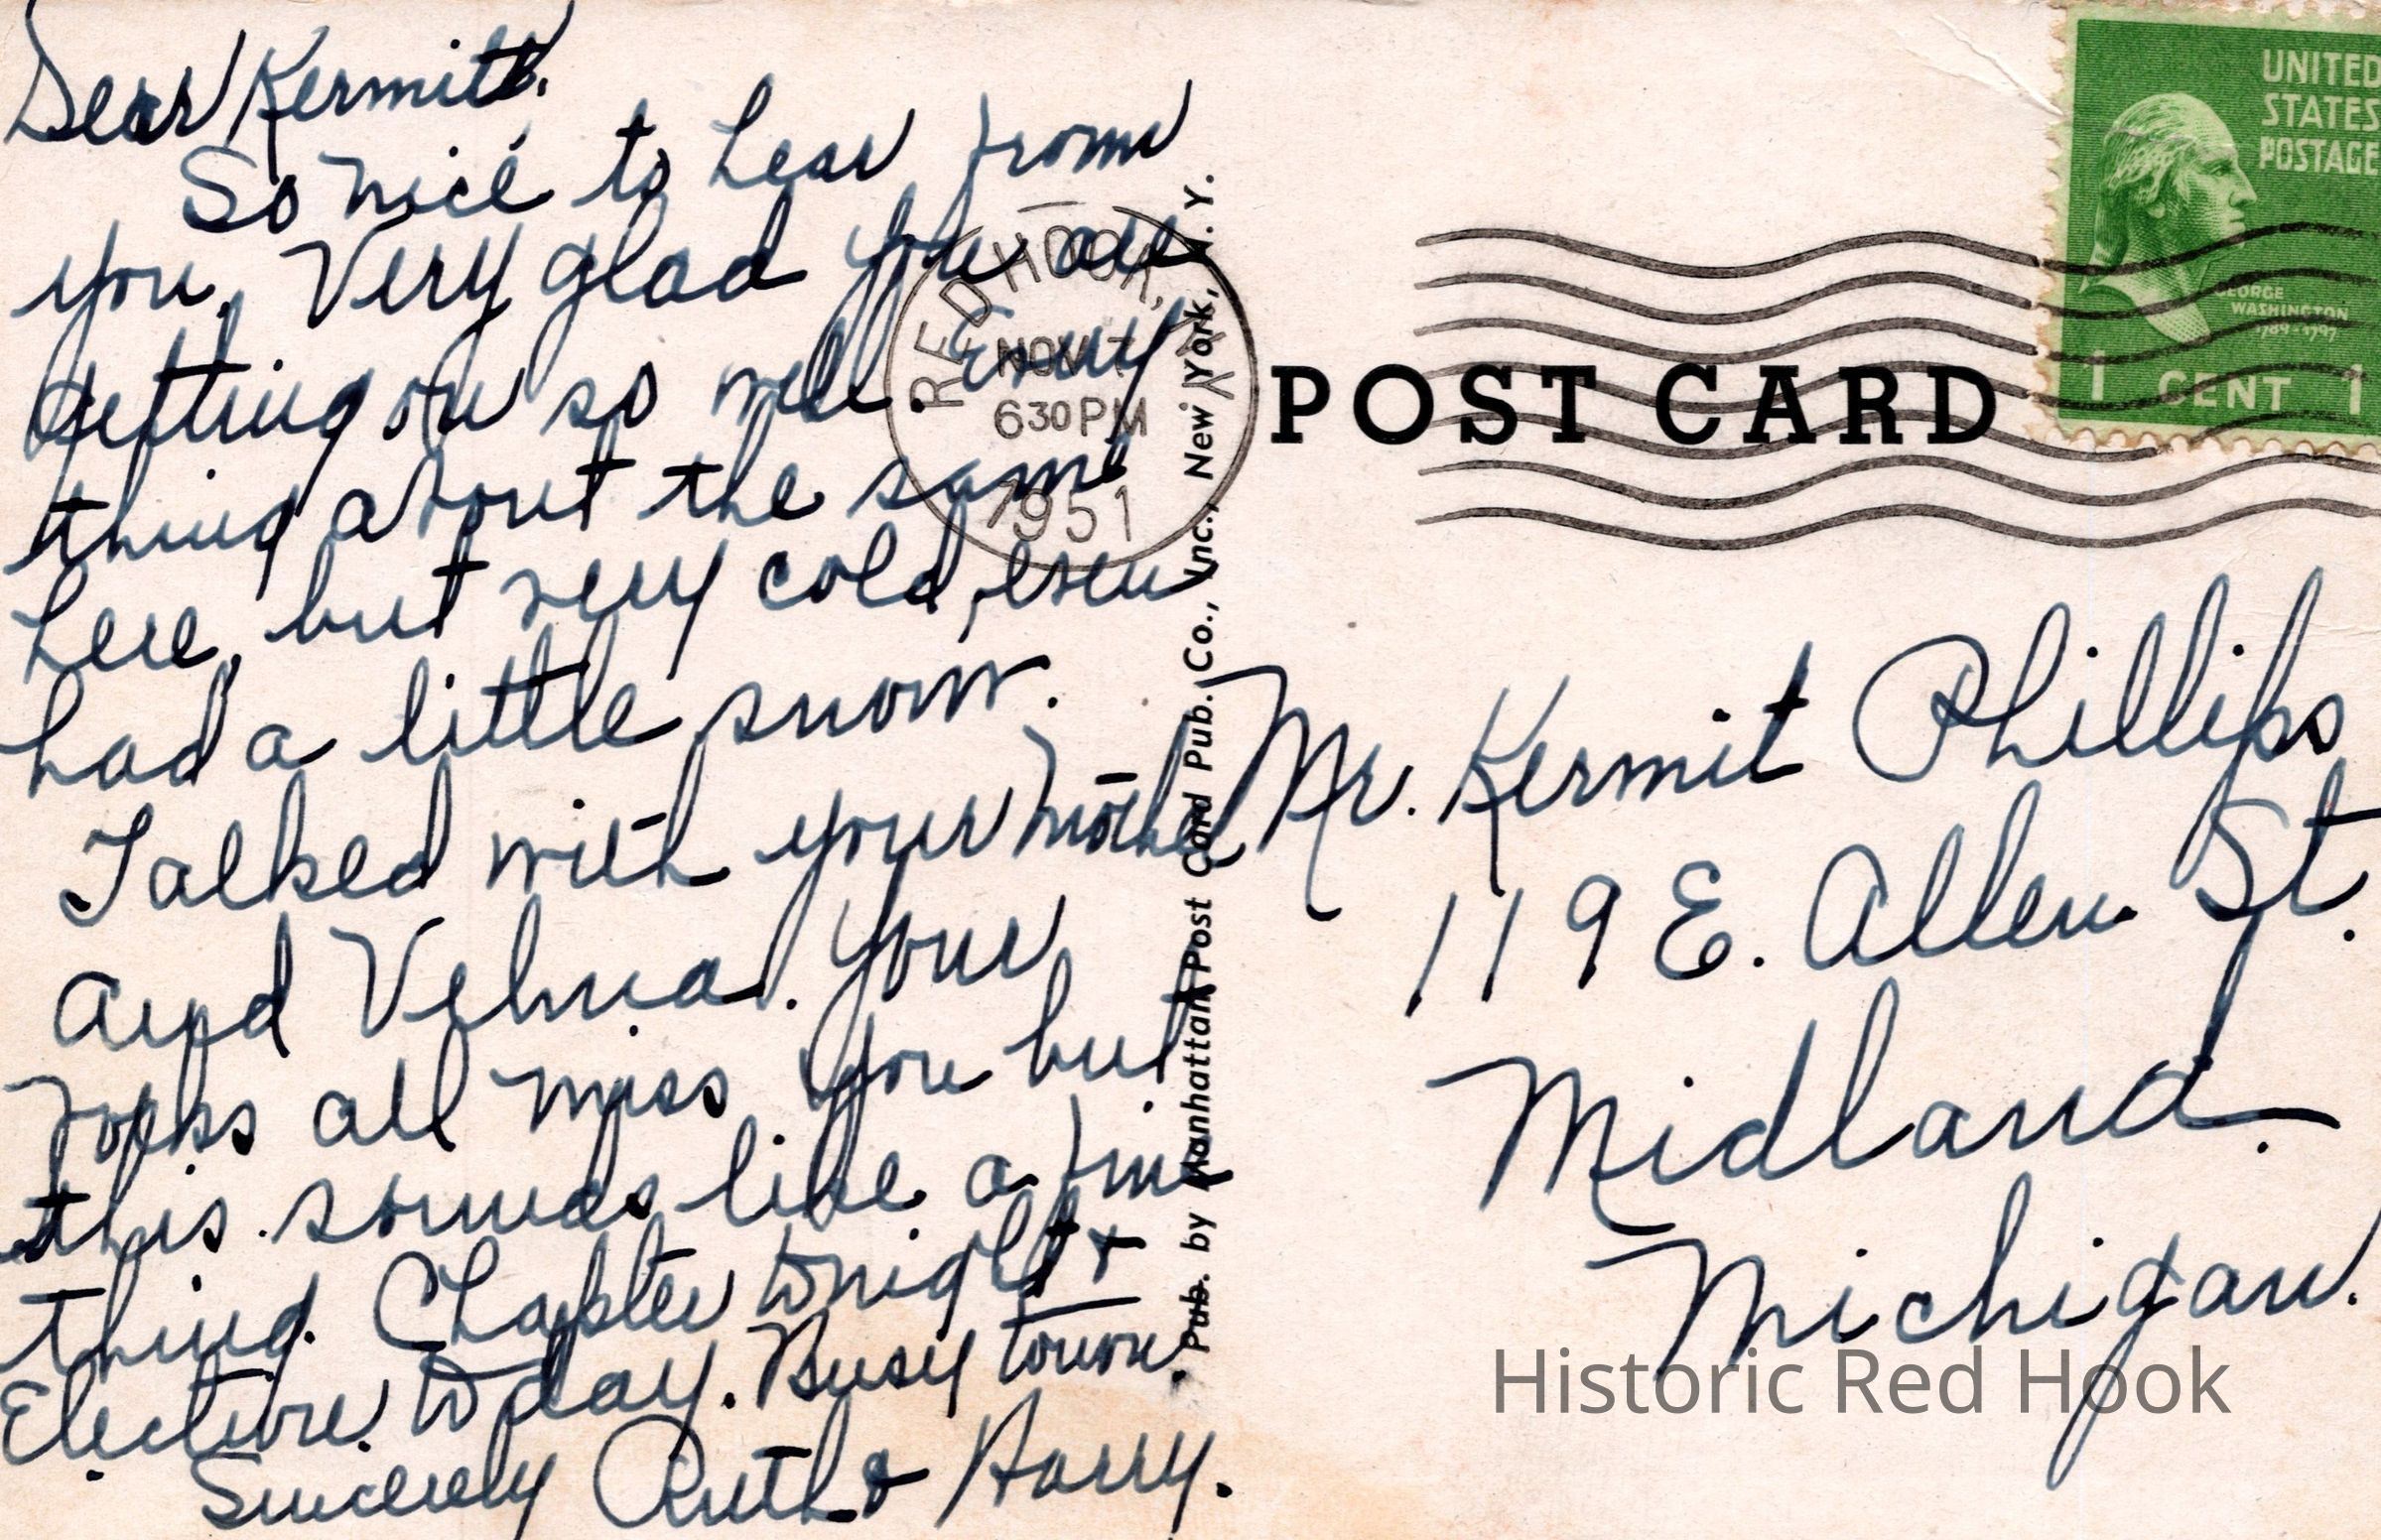 Dear Kermit.
So nice to hear from
you. Very glad you are
getting on so well. Every
thing about the same
here, but very cold, even
had a little snow.
Talked with your mother
and Velma. Your
folks all miss you but
this sounds like a fine
thing. Chapter tonight &
Election today. Busy town.
Sincerely Ruth & Harry.
RED HOOK, N.Y.
NOV 7
630 PM
1951
Pub. by Manhattan Post Card Pub. Co., Inc., New York, N.Y.
POST CARD
UNITED
STATES
POSTAGE
GEORGE
WASHINGTON
1789-1797
1 CENT 1
Mr. Kermit Phillips
119 E. Allen St.
Midland.
Michigan.
Historic Red Hook